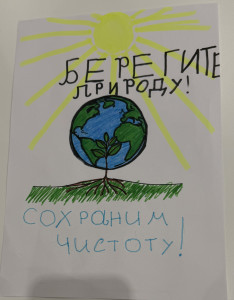 БЕРЕГИТЕ
ПРИРОДУ!
СОХРАНИМ
ЧИСТОТУ!